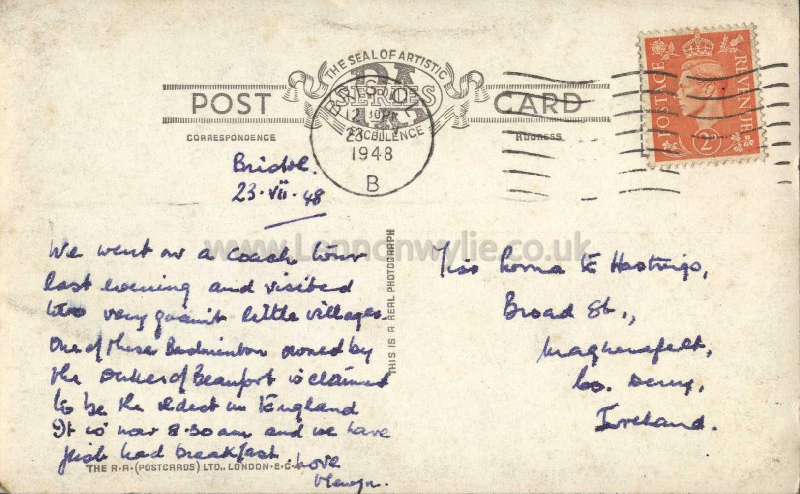 THE SEAL OF ARTISTIC
EXCELLENCE
RA
SERIES
POST CARD
CORRESPONDENCE
ADDRESS
BRISTOL
12 30PM
23
1948
B
POSTAGE
REVENUE
2D
Bristol.
23·VII·48
We went on a coach tour
last evening and visited
two very quaint little villages.
One of these Badminton owned by
the Dukes of Beaufort is claimed
to be the oldest in England
It is now 8.30 am and we have
just had breakfast. Love
THIS IS A REAL PHOTOGRAPH
Miss Lorna E Hastings,
Broad St.,
Magherafelt,
Co. Derry,
Ireland.
THE R.A. (POSTCARDS) LTD., LONDON·E·C·
www.Lennonwylie.co.uk